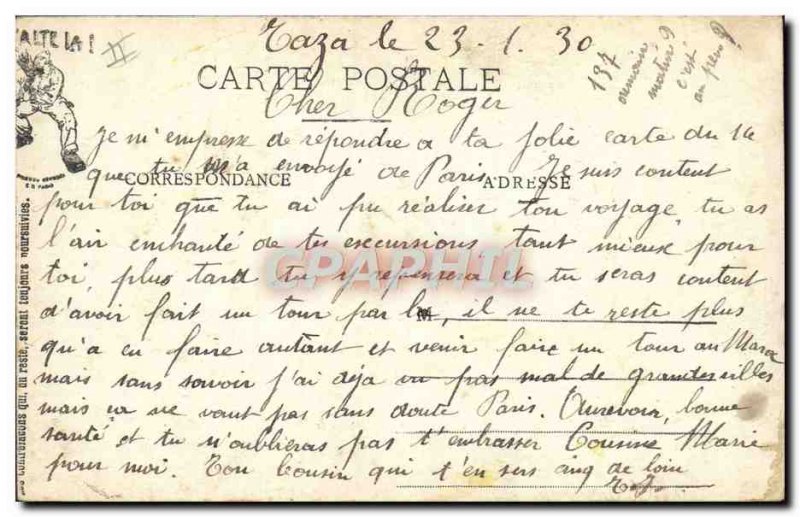 HALTE LA !
II
Taza le 23. 1. 30
137
CARTE POSTALE
Cher Roger
Je m'empresse de répondre a ta jolie carte du 14
que tu m'a envoyé de Paris. Je suis content
CORRESPONDANCE
ADRESSE
pour toi que tu ai pu réaliser ton voyage, tu as
l'air enchanté de tes excursions tant mieux pour
toi, plus tard tu y repensera et tu seras content
CPAPHIL
d'avoir fait un tour par là, il ne te reste plus
qu'a en faire autant et venir faire un tour au Maroc
mais sans savoir j'ai déja vu pas mal de grandes villes
mais ça ne vaut pas sans doute Paris. Aurevoir, bonne
santé et tu n'oublieras pas t'embrasser Cousine Marie
pour moi. Ton Cousin qui t'en sers cinq de loin
c'est
au peu
contrefaçons qui, du reste, seront toujours poursuivies.